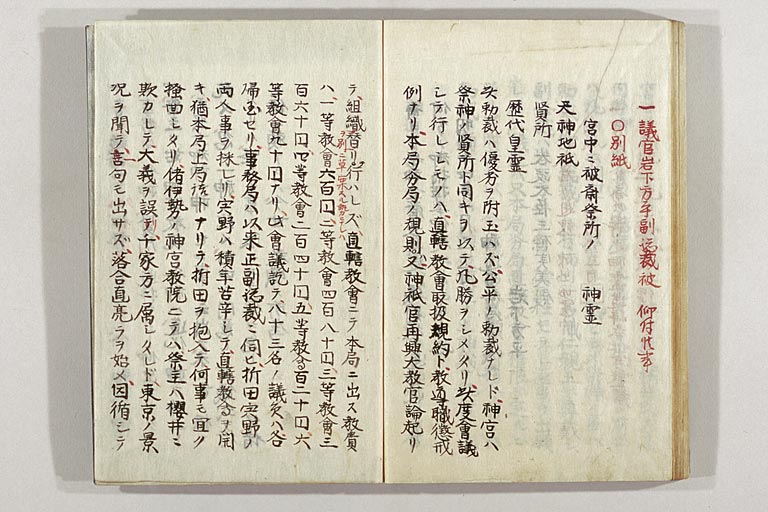 一 議官岩下方平副総裁被 仰付候事
〇別紙
宮中ニ被斎祭所ノ 神霊
天神地祇
賢所
歴代皇霊
次勅裁ハ優劣ヲ附玉ハズ公平ノ勅裁ナレド、神宮ハ
祭神ノ賢所ト同キヲ以テ凡勝ヲシメタリ、次度会議
シテ行レシモノハ、直轄教會取扱規約ト教導職懲戒
例ナリ、本局分局ノ規則又神祇官再興大教官論起リ
テ、組織替リ行ハレズ、直轄教會ニテ本局ニ出ス教費
ハ、一等教會六百円、二等教會四百八十円、三等教會三
百六十円、四等教會二百四十円、五等教會百二十円、六
等教會九十円ナリ、此會議訖テ八十三名ノ議员ハ各
帰国セリ、事務局ハ以来正副総裁ニ伺ヒ、折田宍野ノ
両人事ヲ採レリ、宍野ハ積年苦辛シテ直轄教会ヲ開
キ猶本局上局

ナリテ、折田ヲ抱入テ何事モ宜ク
ノ神宮教院ニテハ祭主ハ櫻井ニ
欺カレテ大義ヲ誤テ、千家方ニ属レタレド、東京ノ景
况ヲ聞テ言句モ出サズ、落合直亮ヲ始メ因循シテ